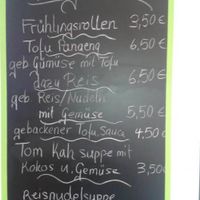 Frühlingsrollen 3,50€
Tofu Panaeng 6,50€
geb Gumüse mit Tofu
dazu Reis 6,50€
geb. Reis/Nudeln
mit Gemüse 5,50€
gebackener Tofu, Sauce 4,50€
Tom Kah suppe mit
Kokos u. Gemüse 3,50€
Reisnudelsuppe